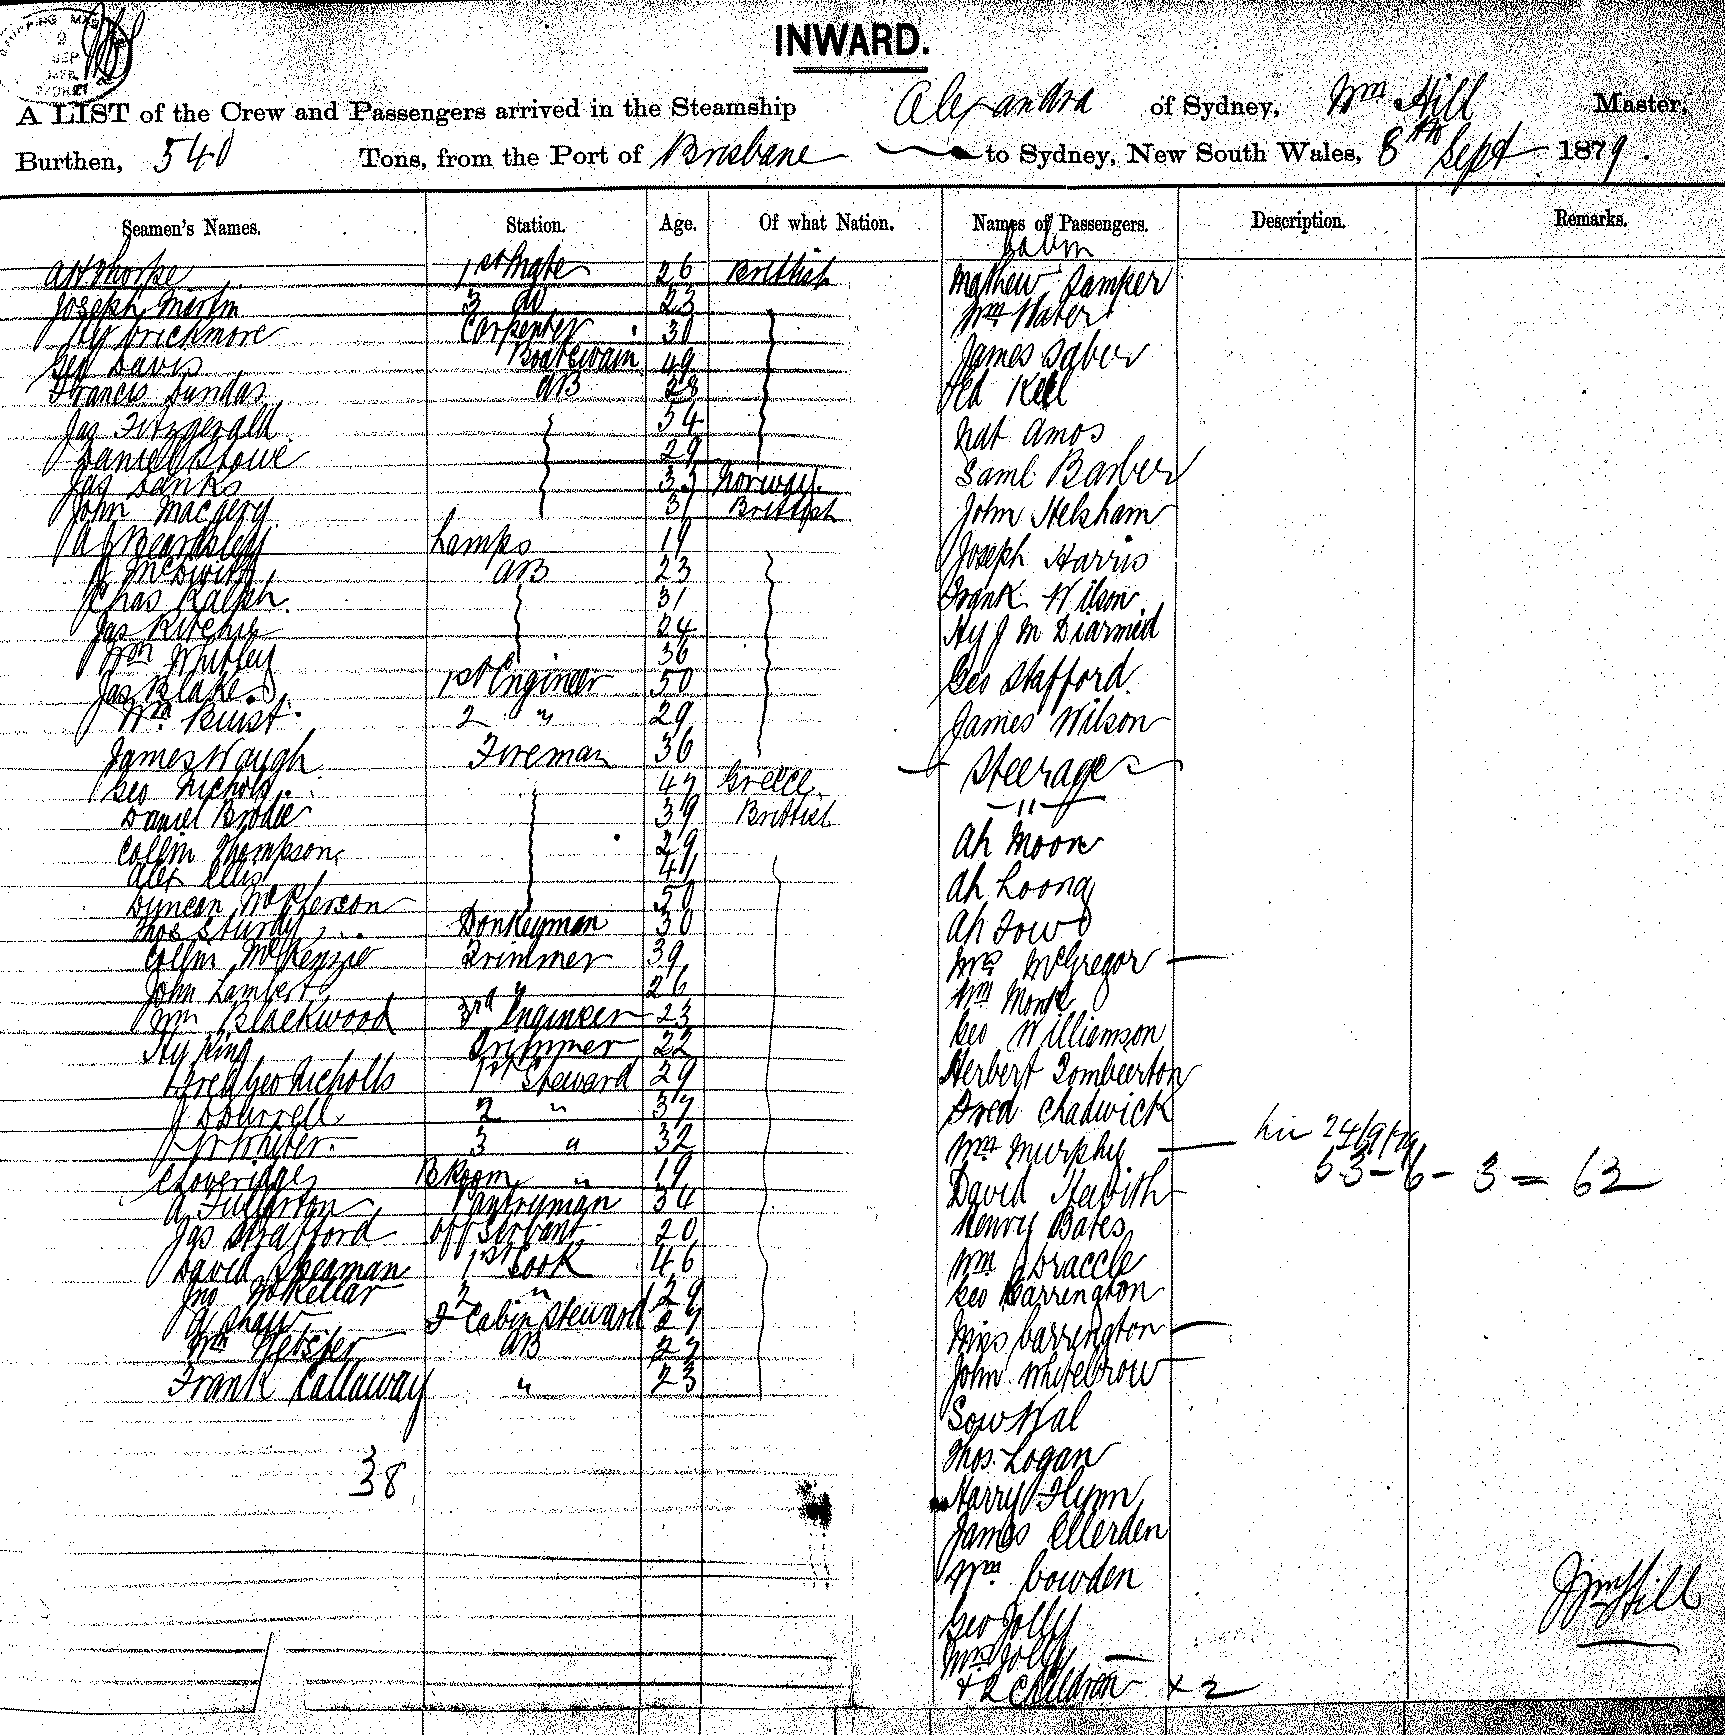 INWARD.
A LIST of the Crew and Passengers arrived in the Steamship Alexandra of Sydney, Wm Hill Master,
Burthen, 540 Tons, from the Port of Brisbane to Sydney, New South Wales, 8th Sept 1879.
Seamen's Names. Station. Age. Of what Nation. Names of Passengers. Description. Remarks.
Cabin
A W Thorpe 1st Mate 26 Brittish
Joseph Martin 2 do 23
Hy Crichmore Carpenter 30
Geo Davis Boatswain 49
Francis Dundas AB 28
Jas Fitzgerald 54
Daniel Stowe 29
Jas Banks 33 Norway.
John Macgery 31 Brittish
A Beardsley Lamps 19
AB 23
Chas Ralph. 31
Jas Ritchie 24
Wm Whitley 36
Jas Blake 1st Engineer 50
Wm Buist 2 " 29
James Waugh Fireman 36
Geo Nichols 47 Greece.
Daniel Brodie 39 Brittish
Collin Thompson 29
Alex Ellis 41
Duncan McPherson 50
Thos Sturdy Donkeyman 30
Collin McKenzie Trimmer 39
John Lambert " 26
Wm Blackwood 3rd Engineer 23
Hy King Trimmer 22
Fred Geo Nicholls 1st Steward 29
J Dburrell 2 " 37
3 " 32
C Loveridge B Room " 19
A Fullarton Pantryman 34
Jas Strafford Off Servant 20
David Shearman 1st Cook 46
Jno McKellar 2 " 29
A Shaw F Cabin Steward 27
Wm Webster AB 27
Frank Callaway " 23
38
Mathew Samper
Wm Water
James Saber
Ed Kell
Nat Amos
Saml Barber
John Helsham
Joseph Harris
Frank Wilson
Hy J M Diarmid
Geo Stafford.
James Wilson
Steerage
"
Ah Moon
Ah Loong
Ah Fow
Mrs McGregor
Wm Monk
Geo Williamson
Herbert Pomberton
Fred Chadwick
Wm Murphy
24/9/79
53 - 6 - 3 = 62
David Hebith
Henry Bates
Wm J Draccle
Geo Carrington
Miss Carrington
John Whitebrow
Sow Wal
Thos. Logan
Harry Flynn
James Ellerden
Wm. Cowden
Geo Jolly
Mrs Jolly
+ 2 Children + 2
Wm Hill